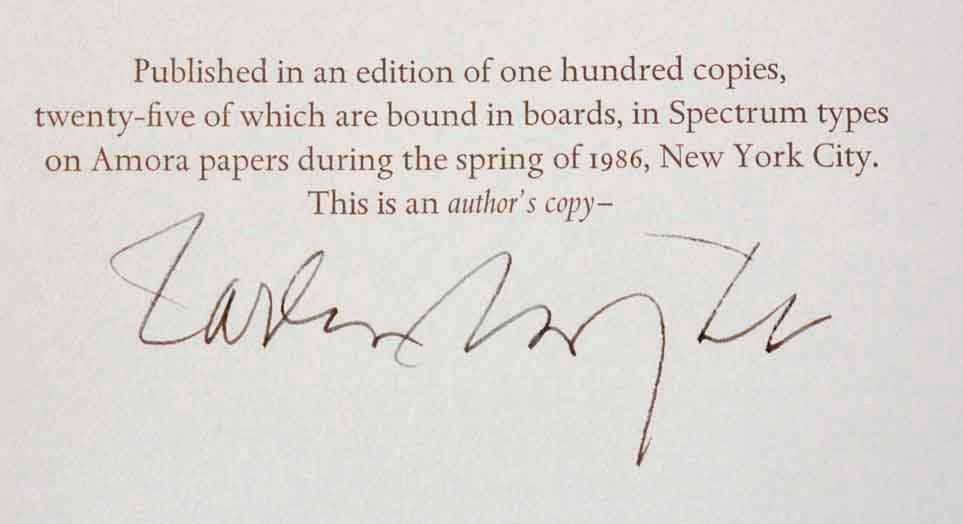 Published in an edition of one hundred copies,
twenty-five of which are bound in boards, in Spectrum types
on Amora papers during the spring of 1986, New York City.
This is an author's copy–